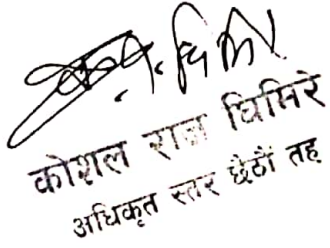 कोशल राज घिमिरे
अधिकृत स्तर छैठौं तह